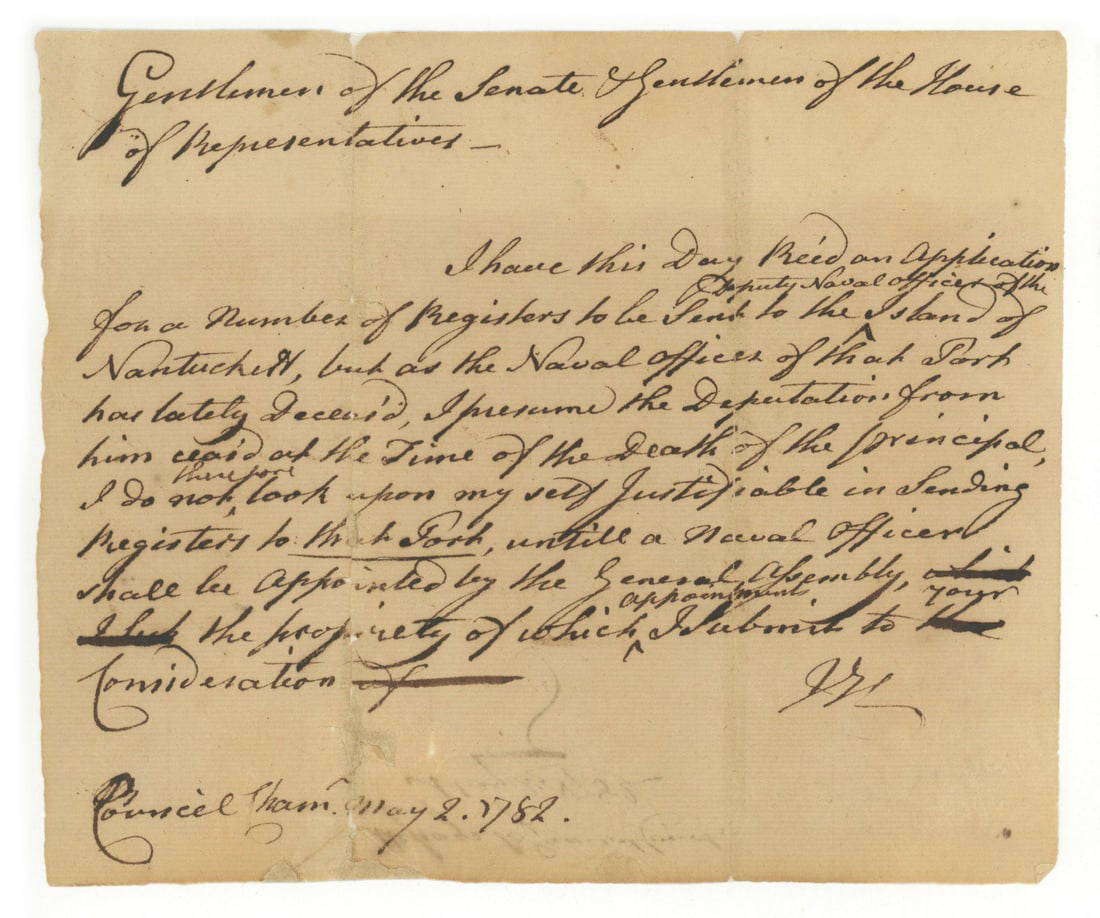 Gentlemen of the Senate & Gentlemen of the House
of Representatives —
I have this Day Rec'd an Application
Deputy Naval Officer of the
for a Number of Registers to be Sent to the ^ Island of
Nantuckett, but as the Naval Officer of that Port
has lately Deceas'd, I presume the Deputation from
him ceas'd at the Time of the Death of the principal,
therefore
I do not ^ look upon my self Justifiable in Sending
Registers to that Port, untill a Naval Officer
shall be Appointed by the General Assembly, which
appointment your
I the propriety of which ^ I Submit to the
Consideration of
JH
Councel Cham.r May 2. 1782.